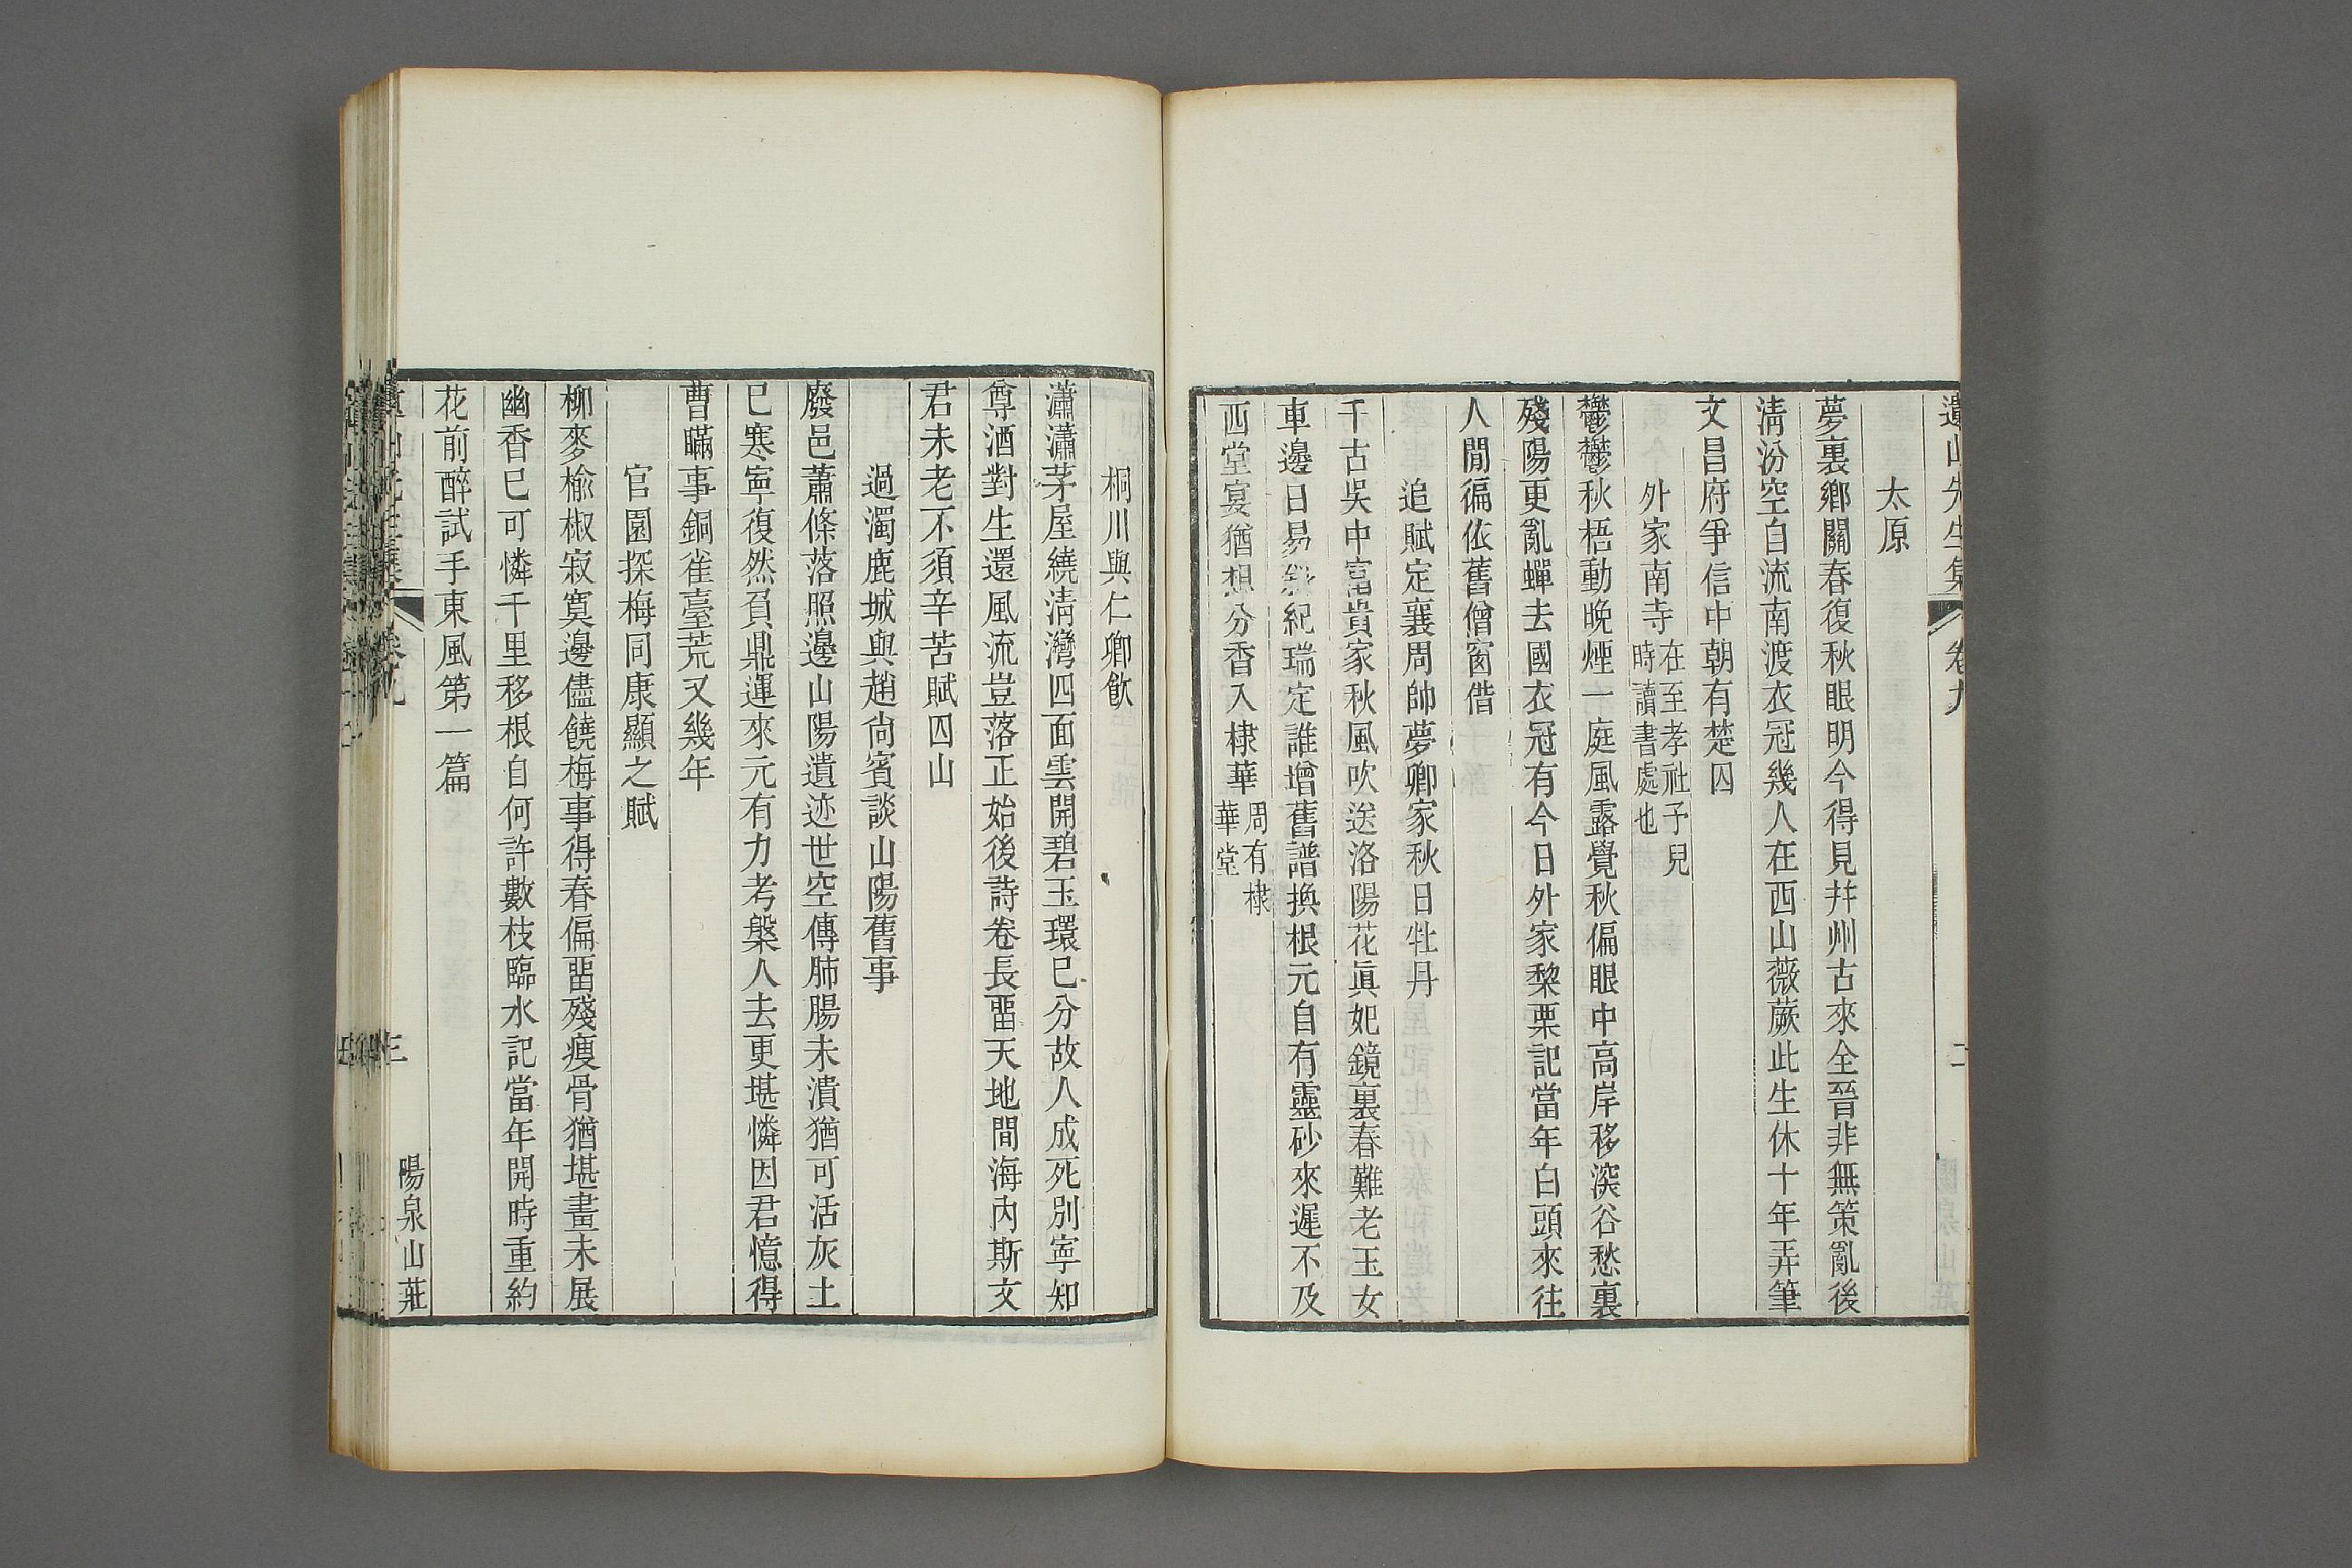 遺山先生集 卷九 二
太原
夢裏鄉關春復秋眼明今得見幷州古來全晉非無策亂後
淸汾空自流南渡衣冠幾人在西山薇蕨此生休十年弄筆
文昌府爭信中朝有楚囚
外家南寺在至孝社予兒時讀書處也
鬱鬱秋梧動晚煙一庭風露覺秋偏眼中高岸移深谷愁裏
殘陽更亂蟬去國衣冠有今日外家棃栗記當年白頭來往
人閒徧依舊僧窗借
追賦定襄周帥夢卿家秋日牡丹
千古吳中富貴家秋風吹送洛陽花眞妃鏡裏春難老玉女
車邊日易紀瑞定誰增舊譜換根元自有靈砂來遲不及
西堂宴猶想分香入棣華周有棣華堂
桐川與仁卿飮
瀟瀟茅屋繞淸灣四面雲開碧玉環已分故人成死別寧知
尊酒對生還風流豈落正始後詩卷長畱天地間海內斯文
君未老不須辛苦賦囚山
過濁鹿城與趙尙賓談山陽舊事
廢邑蕭條落照邊山陽遺迹世空傳肺腸未潰猶可活灰土
已寒寧復然負鼎運來元有力考槃人去更堪憐因君憶得
曹瞞事銅雀臺荒又幾年
官園探梅同康顯之賦
柳麥楡椒寂寞邊儘饒梅事得春偏畱殘瘦骨猶堪畫未展
幽香已可憐千里移根自何許數枝臨水記當年開時重約
花前醉試手東風第一篇
卷九 三 陽泉山莊